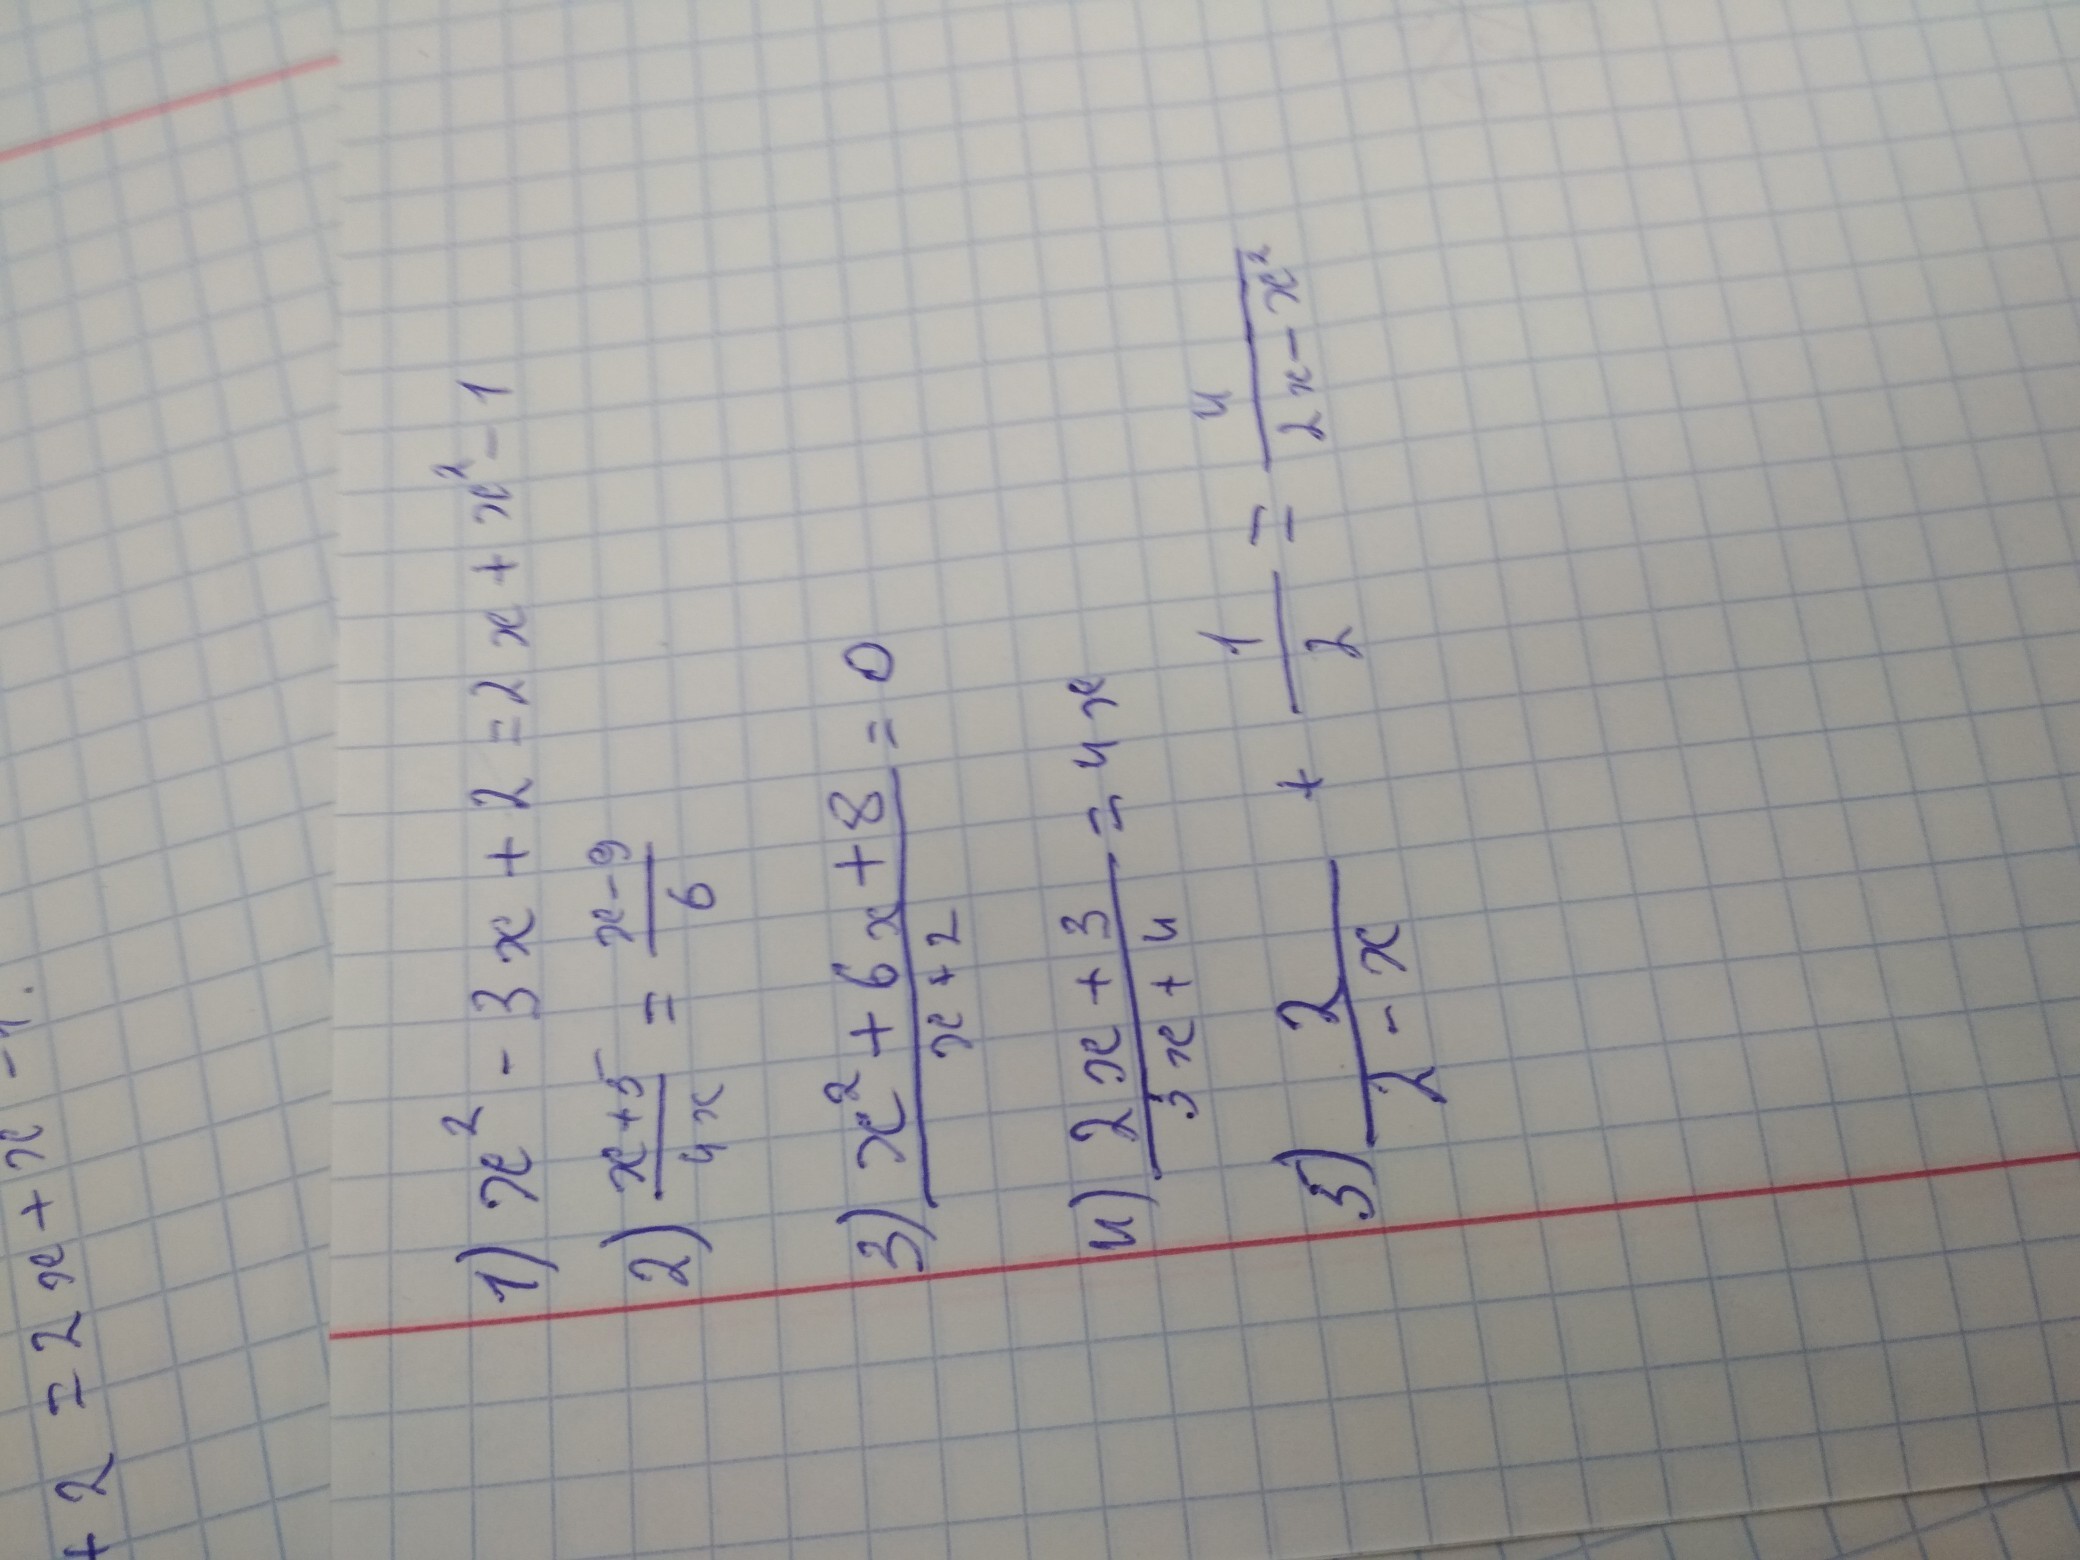 + 2 = 2x + x - 1.
1) x² - 3x + 2 = 2x + x² - 1
2) (x+5)/(4x) = (x-9)/6
3) (x² + 6x + 8)/(x+2) = 0
4) (2x+3)/(3x+4) = 4x
5) 2/(2-x) + 1/2 = 4/(2x-x²)